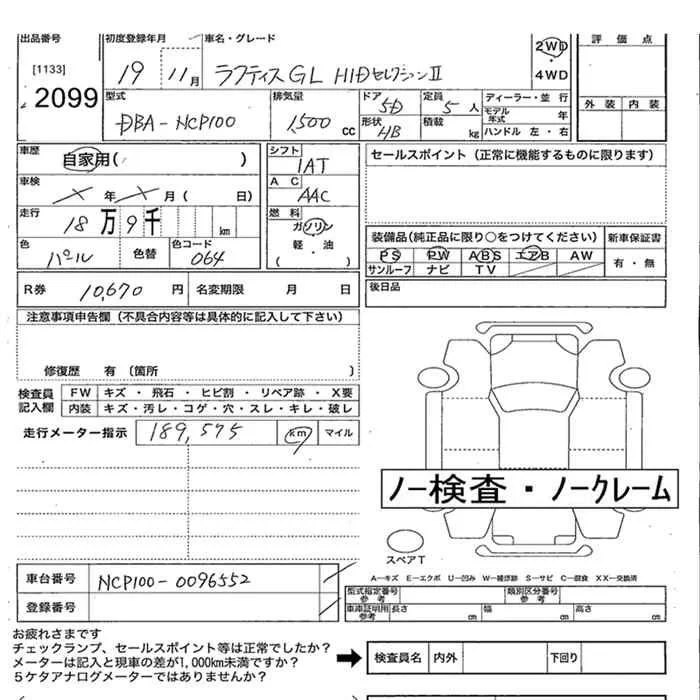 出品番号 初度登録年月 車名・グレード 2WD 評価点
[1133] 19 11月 ラクティス GL HIDセレクションⅡ ・
2099 4WD
型式 排気量 ドア 5D 定員 5人 ディーラー・並行 外装 内装
DBA-NCP100 1,500cc 形状 HB 積載 kg モデル年式 年
ハンドル 左・右
車歴 自家用( ) シフト 1AT セールスポイント（正常に機能するものに限ります）
車検 年 月( 日) AC AAC
走行 18万9千 km 燃料 ガソリン 装備品(純正品に限り○をつけてください) 新車保証書
色 パール 色替 色コード 064 軽・油 PS PW ABS エアB AW 有・無
( ) サンルーフ ナビ TV
R券 10,670円 名変期限 月 日 後日品
注意事項申告欄（不具合内容等は具体的に記入して下さい）
修復歴 有〔箇所 〕
検査員 FW キズ・飛石・ヒビ割・リペア跡・X要
記入欄 内装 キズ・汚レ・コゲ・穴・スレ・キレ・破レ
走行メーター指示 189,575 km マイル
ノー検査・ノークレーム
スペアT
A－キズ E－エクボ U－凹み W－補修跡 S－サビ C－腐食 XX－交換済
車台番号 NCP100-0096552 型式指定番号 参考 類別区分番号 参考
登録番号 車庫証明用 参考 長さ cm 幅 cm 高さ cm
お疲れさまです
チェックランプ、セールスポイント等は正常でしたか？
メーターは記入と現車の差が1,000km未満ですか？
5ケタアナログメーターではありませんか？
検査員名 内外 下回り